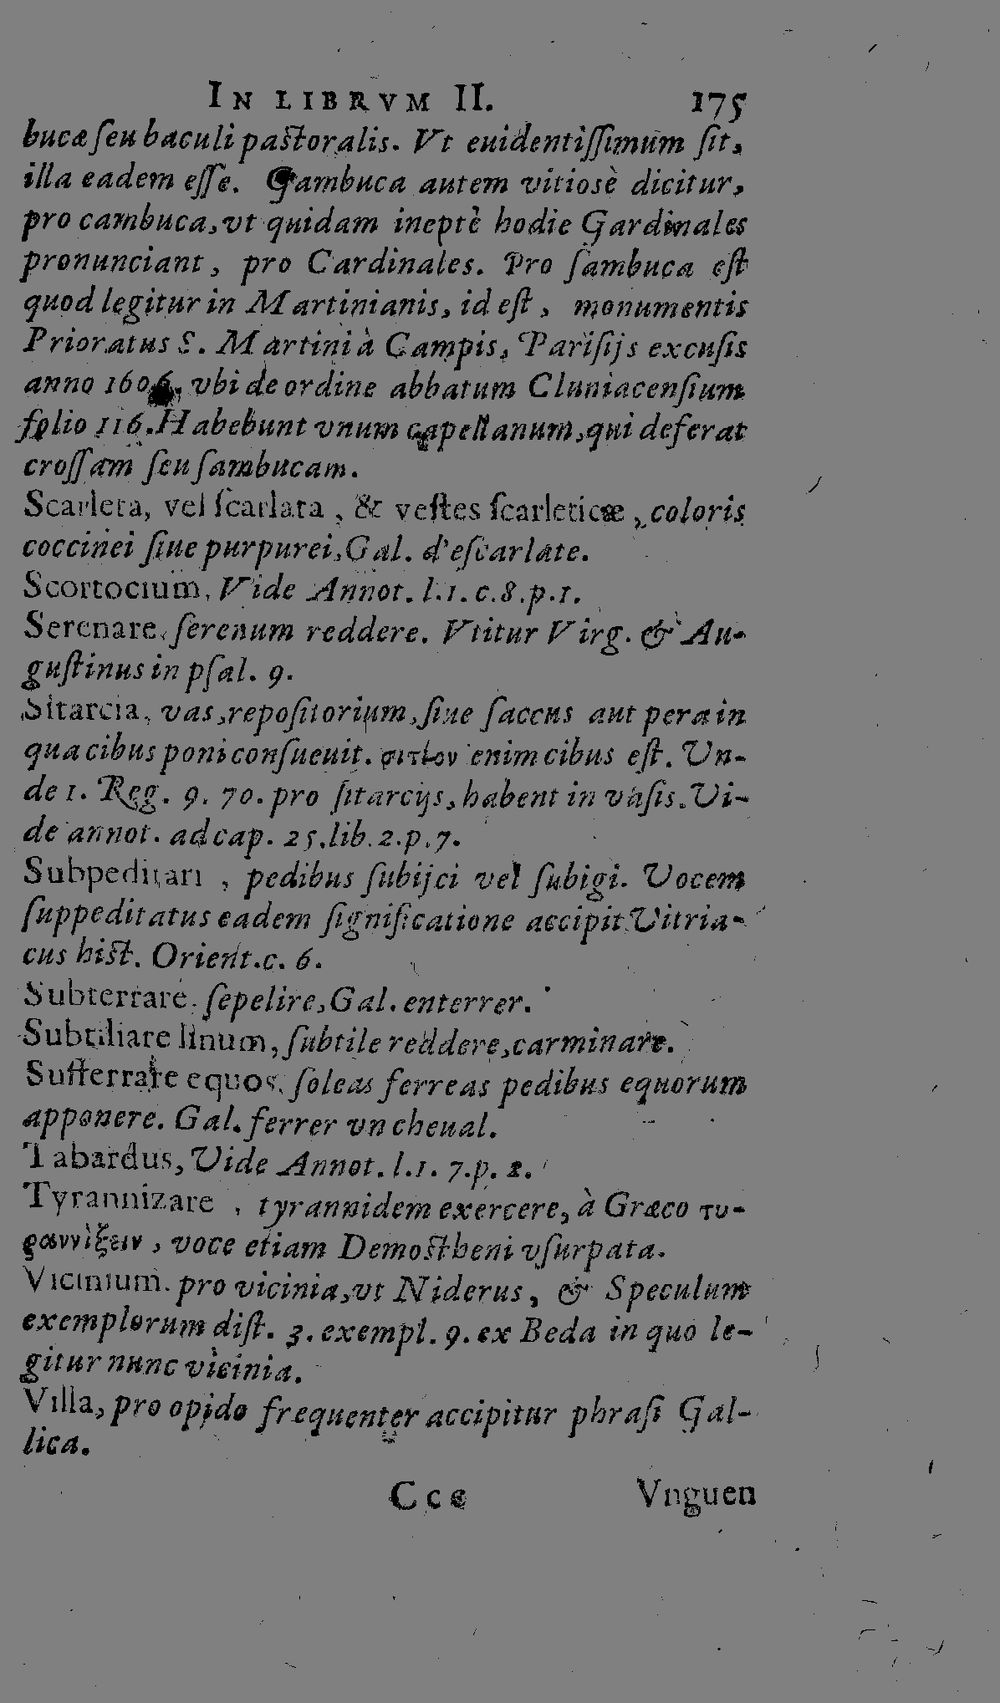 IN LIBRVM II. 175
bucæ ſeu baculi paſtoralis. Vt euidentiſſimum ſit,
illa eadem eſſe. Gambuca autem vitiosè dicitur,
pro cambuca, vt quidam ineptè hodie Gardinales
pronunciant, pro Cardinales. Pro ſambuca eſt
quod legitur in Martinianis, id eſt, monumentis
Prioratus S. Martini à Campis, Pariſijs excuſis
anno 1606. vbi de ordine abbatum Cluniacenſium
folio 116. Habebunt vnum capellanum, qui deferat
croſſam ſeu ſambucam.
Scarleta, vel ſcarlata, & veſtes ſcarleticæ, coloris
coccinei ſiue purpurei, Gal. d'eſcarlate.
Scortocium, Vide Annot. l.1. c.8. p.1.
Serenare, ſerenum reddere. Vtitur Virg. & Au-
guſtinus in pſal. 9.
Sitarcia, vas, repoſitorium, ſiue ſaccus aut pera in
qua cibus poni conſueuit. σιτίον enim cibus eſt. Un-
de 1. Reg. 9. 70. pro ſitarcijs, habent in vaſis. Vi-
de annot. ad cap. 25. lib. 2. p. 7.
Subpeditari, pedibus ſubijci vel ſubigi. Vocem
ſuppeditatus eadem ſignificatione accipit Vitria-
cus hiſt. Orient. c. 6.
Subterrare, ſepelire, Gal. enterrer.
Subtiliare linum, ſubtile reddere, carminare.
Sufferrare equos, ſoleas ferreas pedibus equorum
apponere. Gal. ferrer vn cheual.
Tabardus, Vide Annot. l.1. 7. p. 2.
Tyrannizare, tyrannidem exercere, à Græco τυ-
ραννίζειν, voce etiam Demoſtheni vſurpata.
Vicinium. pro vicinia, vt Niderus, & Speculum
exemplorum diſt. 3. exempl. 9. ex Beda in quo le-
gitur nunc vicinia.
Villa, pro opido frequenter accipitur phraſi Gal-
lica.
Ccc Vnguen